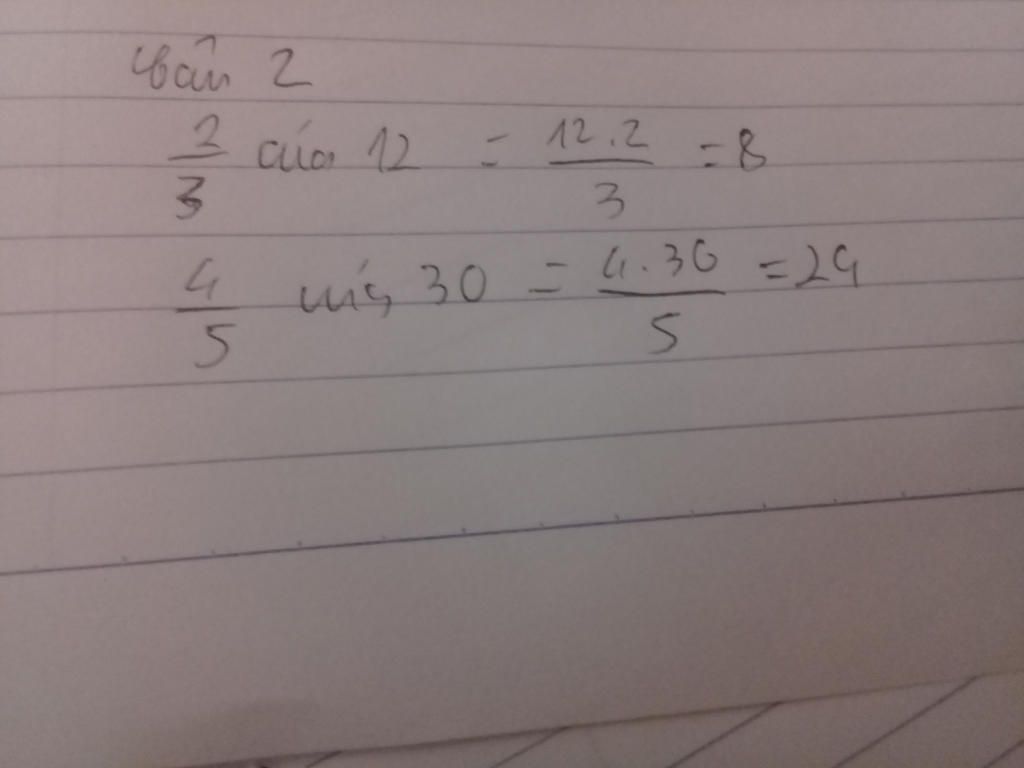 câu 2
2/3 của 12 = 12.2/3 = 8
4/5 của 30 = 4.30/5 = 24